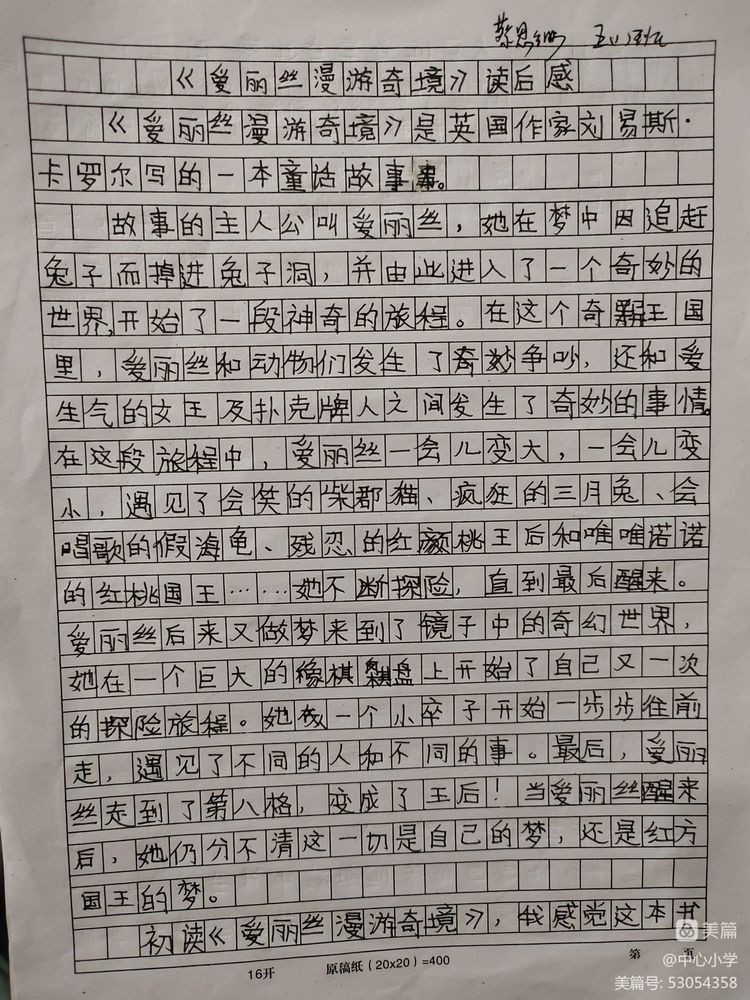 《爱丽丝漫游奇境》读后感
《爱丽丝漫游奇境》是英国作家刘易斯·
卡罗尔写的一本童话故事。
故事的主人公叫爱丽丝，她在梦中因追赶
兔子而掉进兔子洞，并由此进入了一个奇妙的
世界，开始了一段神奇的旅程。在这个奇王国
里，爱丽丝和动物们发生了奇妙争吵，还和爱
生气的女王及扑克牌人之间发生了奇妙的事情。
在这段旅程中，爱丽丝一会儿变大，一会儿变
小，遇见了会笑的柴郡猫、疯狂的三月兔、会
唱歌的假海龟、残忍的红桃王后和唯唯诺诺
的红桃国王……她不断探险，直到最后醒来。
爱丽丝后来又做梦来到了镜子中的奇幻世界，
她在一个巨大的橡棋棋盘上开始了自己又一次
的探险旅程。她我一个小卒子开始一步步往前
走，遇见了不同的人和不同的事。最后，爱丽
丝走到了第八格，变成了王后！当爱丽丝醒来
后，她仍分不清这一切是自己的梦，还是红方
国王的梦。
初读《爱丽丝漫游奇境》，我感觉这本书
16开 原稿纸（20x20）=400 第 页
美篇
@中心小学
美篇号: 53054358